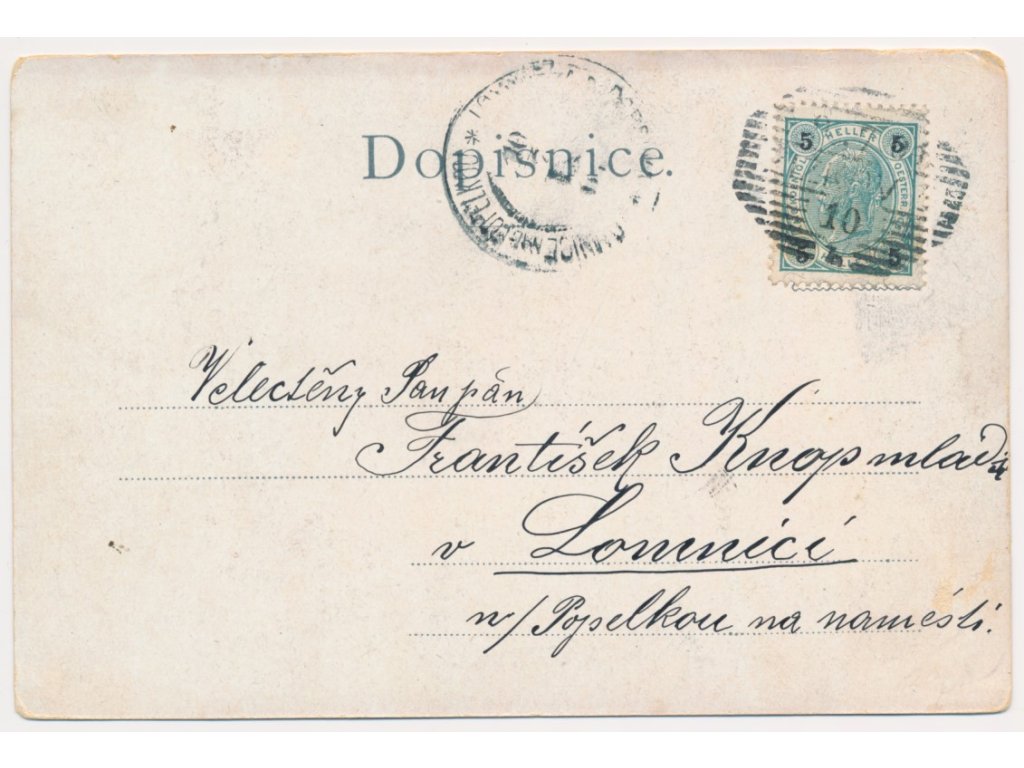 Dopisnice.
5 HELLER 5
10
5 5
Velectěny Pan pán
František Knop mladší
v Lomnici
n/Popelkou na naměsti.